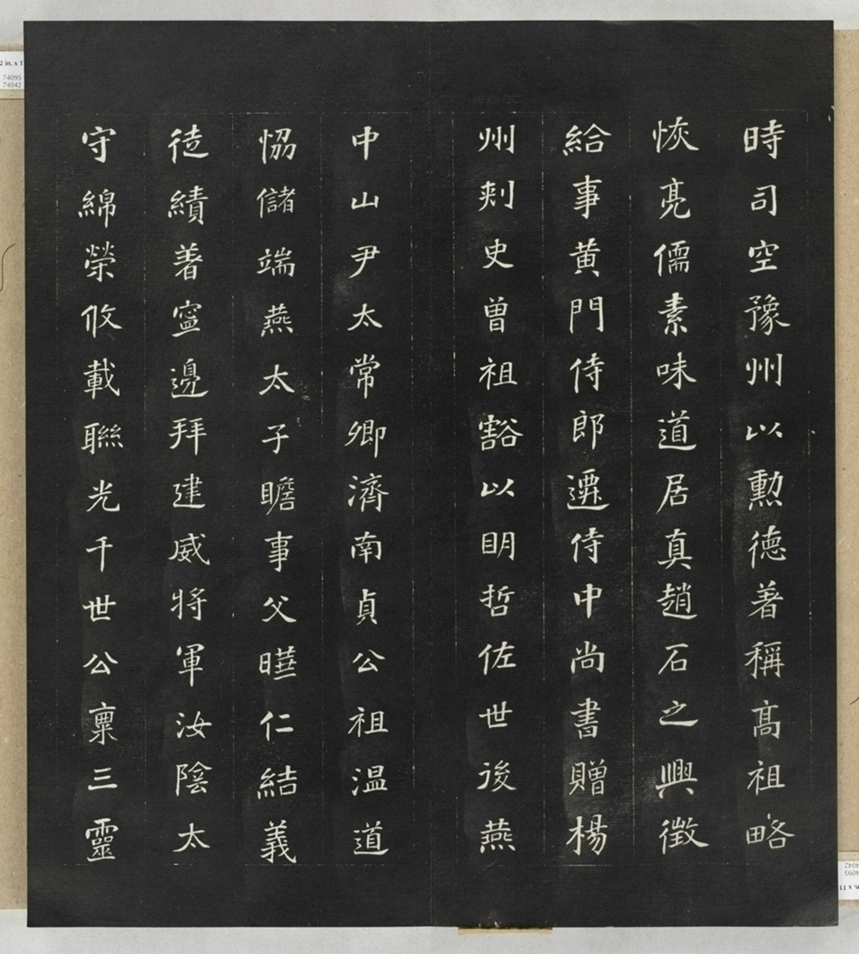 時司空豫州以勲德著稱髙祖略
恢亮儒素味道居真趙石之興徴
給事黄門侍郎遷侍中尚書贈楊
州刾史曾祖豁以眀哲佐世後燕
中山尹太常卿濟南貞公祖温道
恊儲端燕太子瞻事父曄仁結義
徒績著寧邊拜建威將軍汝陰太
守綿榮攸載聯光千世公稟三靈